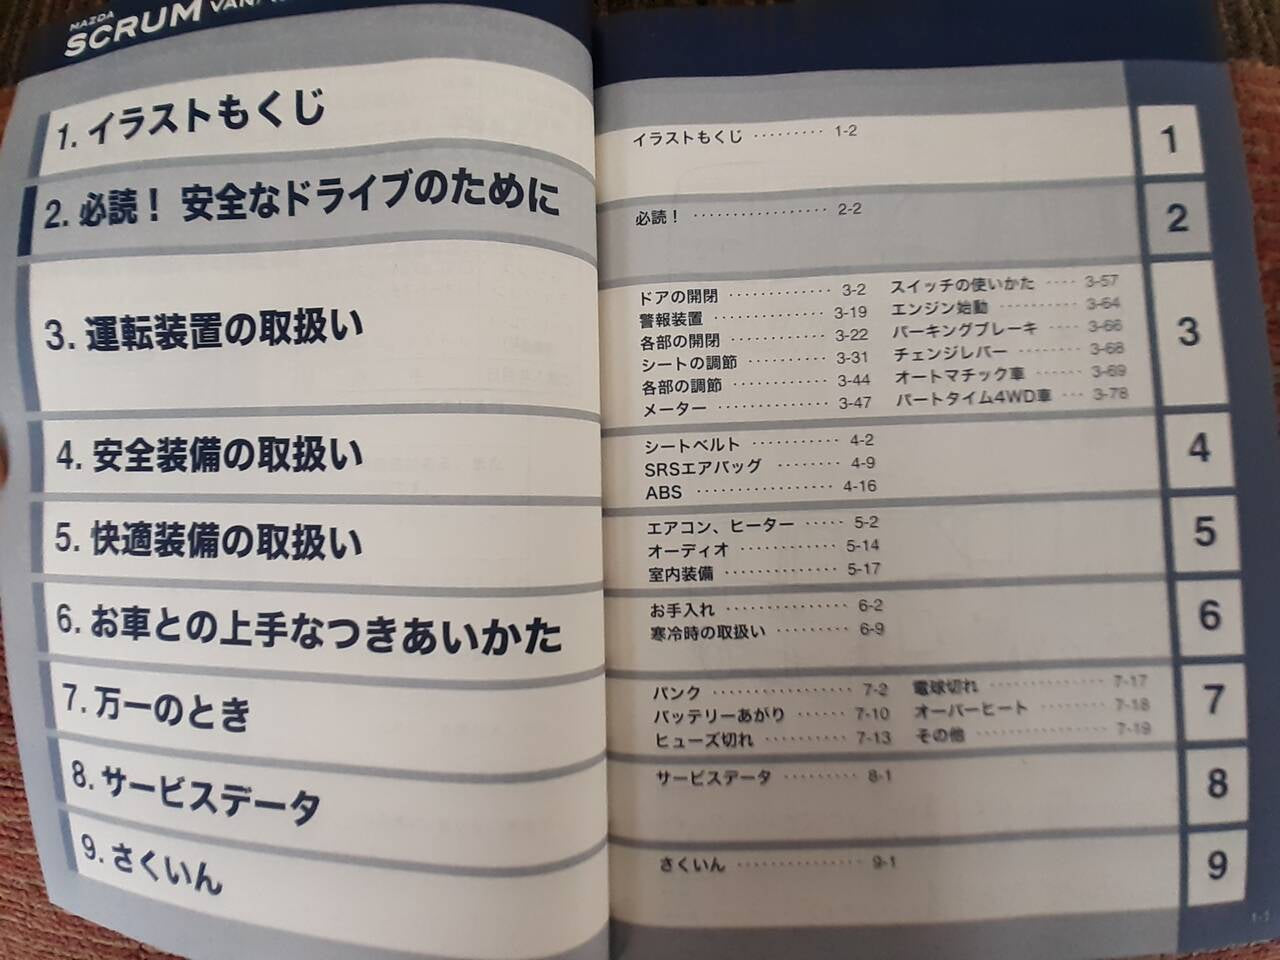 MAZDA
SCRUM VAN
1. イラストもくじ
2. 必読！ 安全なドライブのために
3. 運転装置の取扱い
4. 安全装備の取扱い
5. 快適装備の取扱い
6. お車との上手なつきあいかた
7. 万一のとき
8. サービスデータ
9. さくいん
イラストもくじ ········· 1-2
1
必読！ ················· 2-2
2
ドアの開閉 ············· 3-2
警報装置 ·············· 3-19
各部の開閉 ············ 3-22
シートの調節 ·········· 3-31
各部の調節 ············ 3-44
メーター ·············· 3-47
スイッチの使いかた ···· 3-57
エンジン始動 ·········· 3-64
パーキングブレーキ ···· 3-66
チェンジレバー ········ 3-68
オートマチック車 ······ 3-69
パートタイム4WD車 ··· 3-78
3
シートベルト ··········· 4-2
SRSエアバッグ ········ 4-9
ABS ················· 4-16
4
エアコン、ヒーター ····· 5-2
オーディオ ············ 5-14
室内装備 ·············· 5-17
5
お手入れ ··············· 6-2
寒冷時の取扱い ········· 6-9
6
パンク ················· 7-2
バッテリーあがり ······ 7-10
ヒューズ切れ ·········· 7-13
電球切れ ·············· 7-17
オーバーヒート ········ 7-18
その他 ················ 7-19
7
サービスデータ ········· 8-1
8
さくいん ··············· 9-1
9
1-1